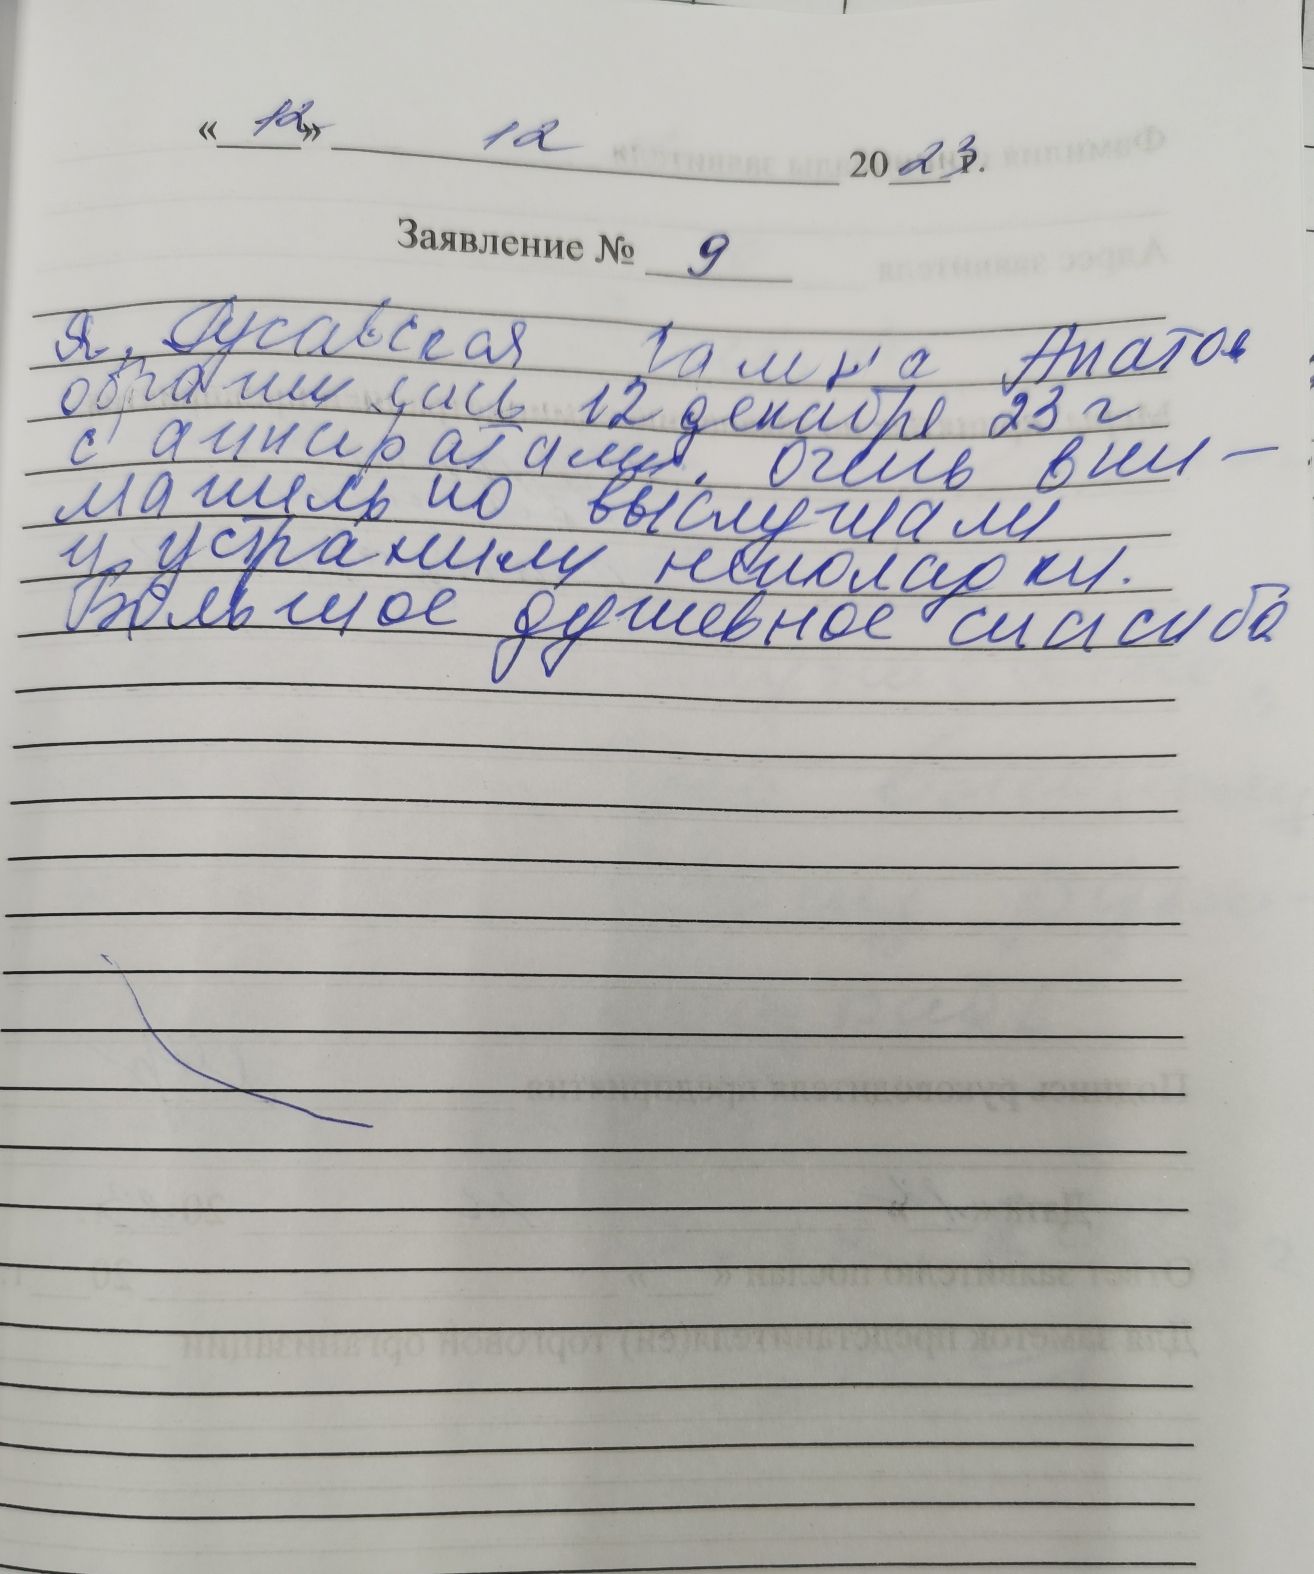 «12» 12 2023 г.
Заявление № 9
Я, Русавская Галина Анатол
обратилась 12 декабря 23 г
с аппаратами. Очень вни-
мательно выслушали
и устранили неполадки.
Большое душевное спасибо